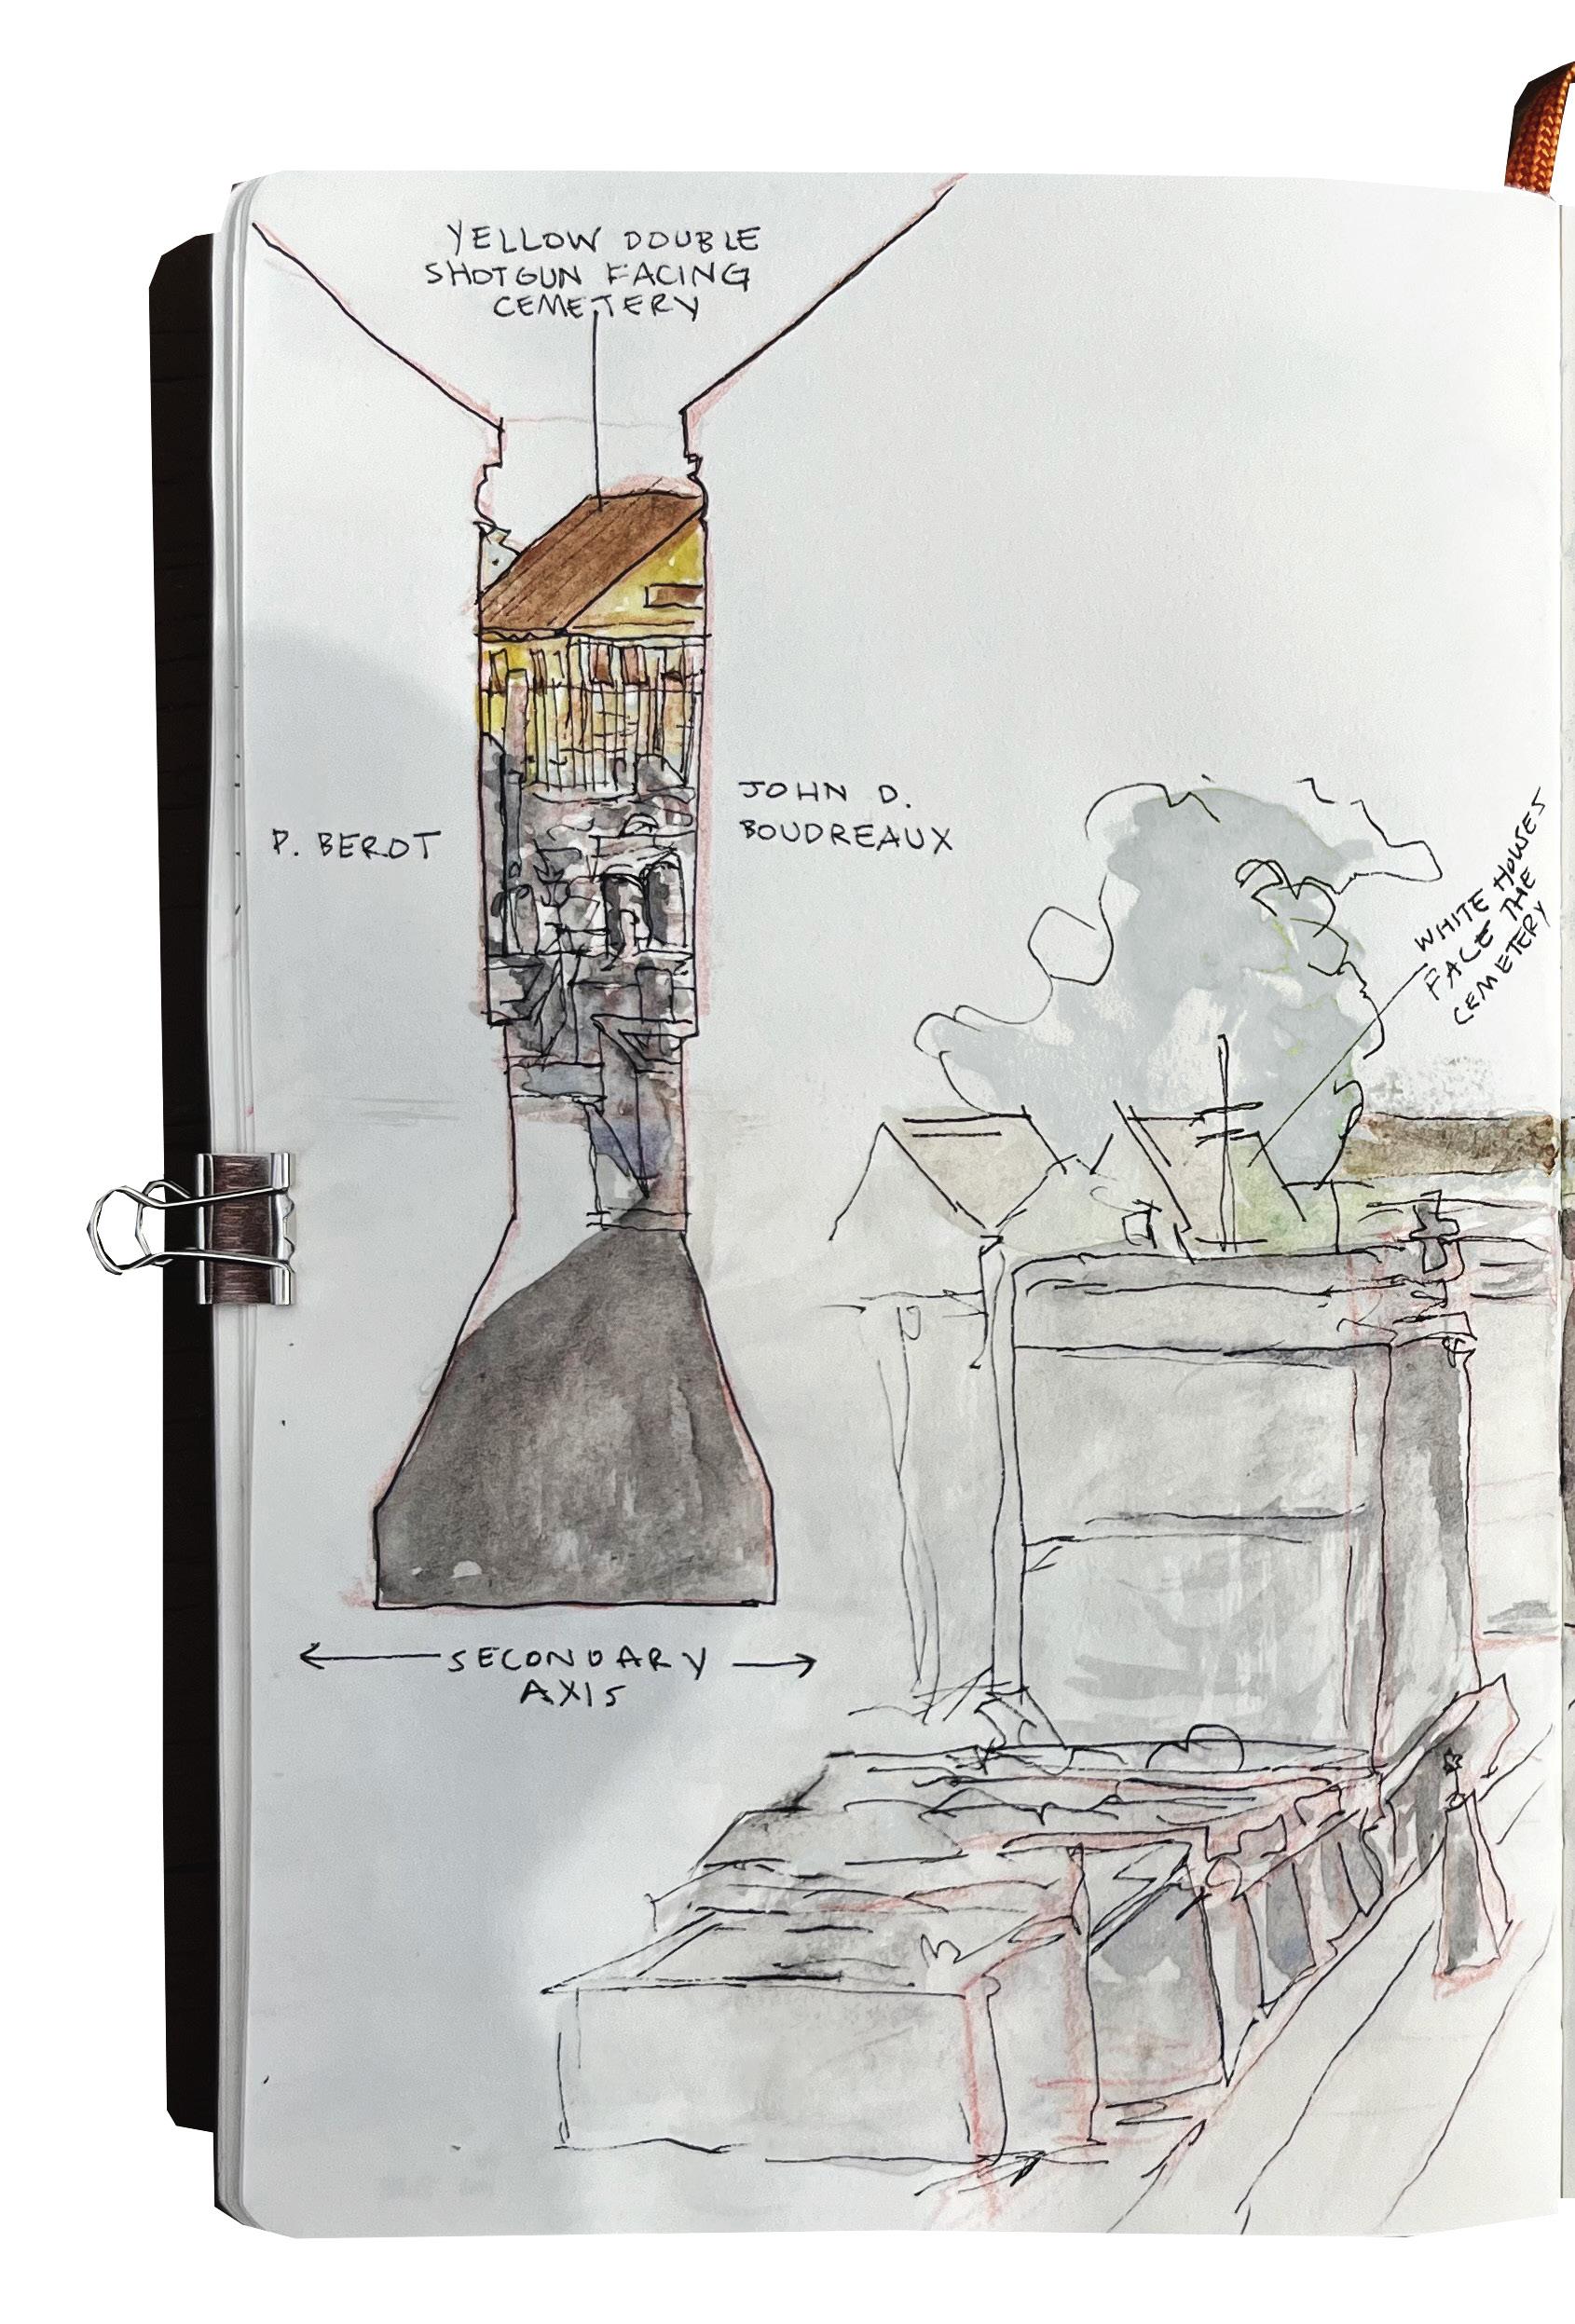 YELLOW DOUBLE
SHOTGUN FACING
CEMETERY
P. BEROT
JOHN D.
BOUDREAUX
WHITE HOUSES
FACE THE
CEMETERY
SECONDARY
AXIS